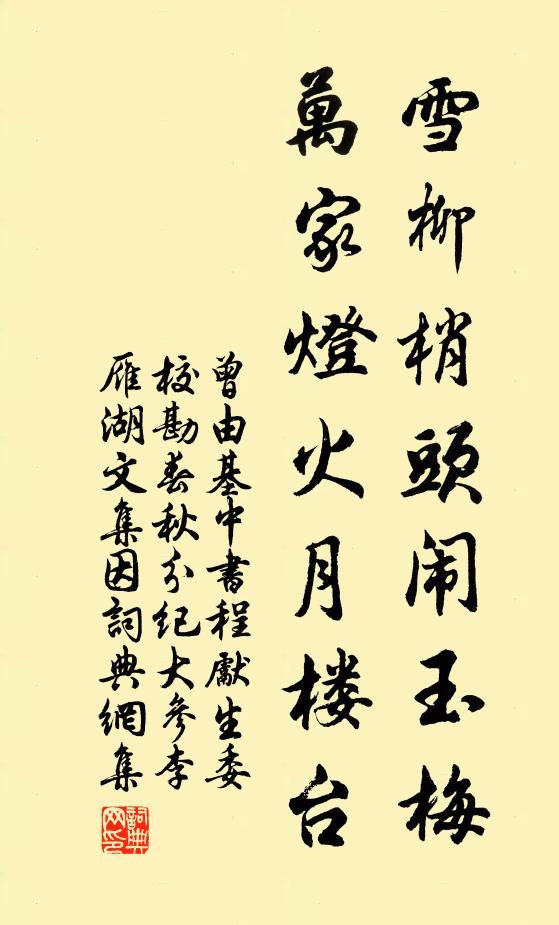 雪柳梢頭闹玉梅
萬家燈火月楼台
曾由基中書程獻生委
校勘春秋分纪大參李
雁湖文集因詞典網集
詞典
网印